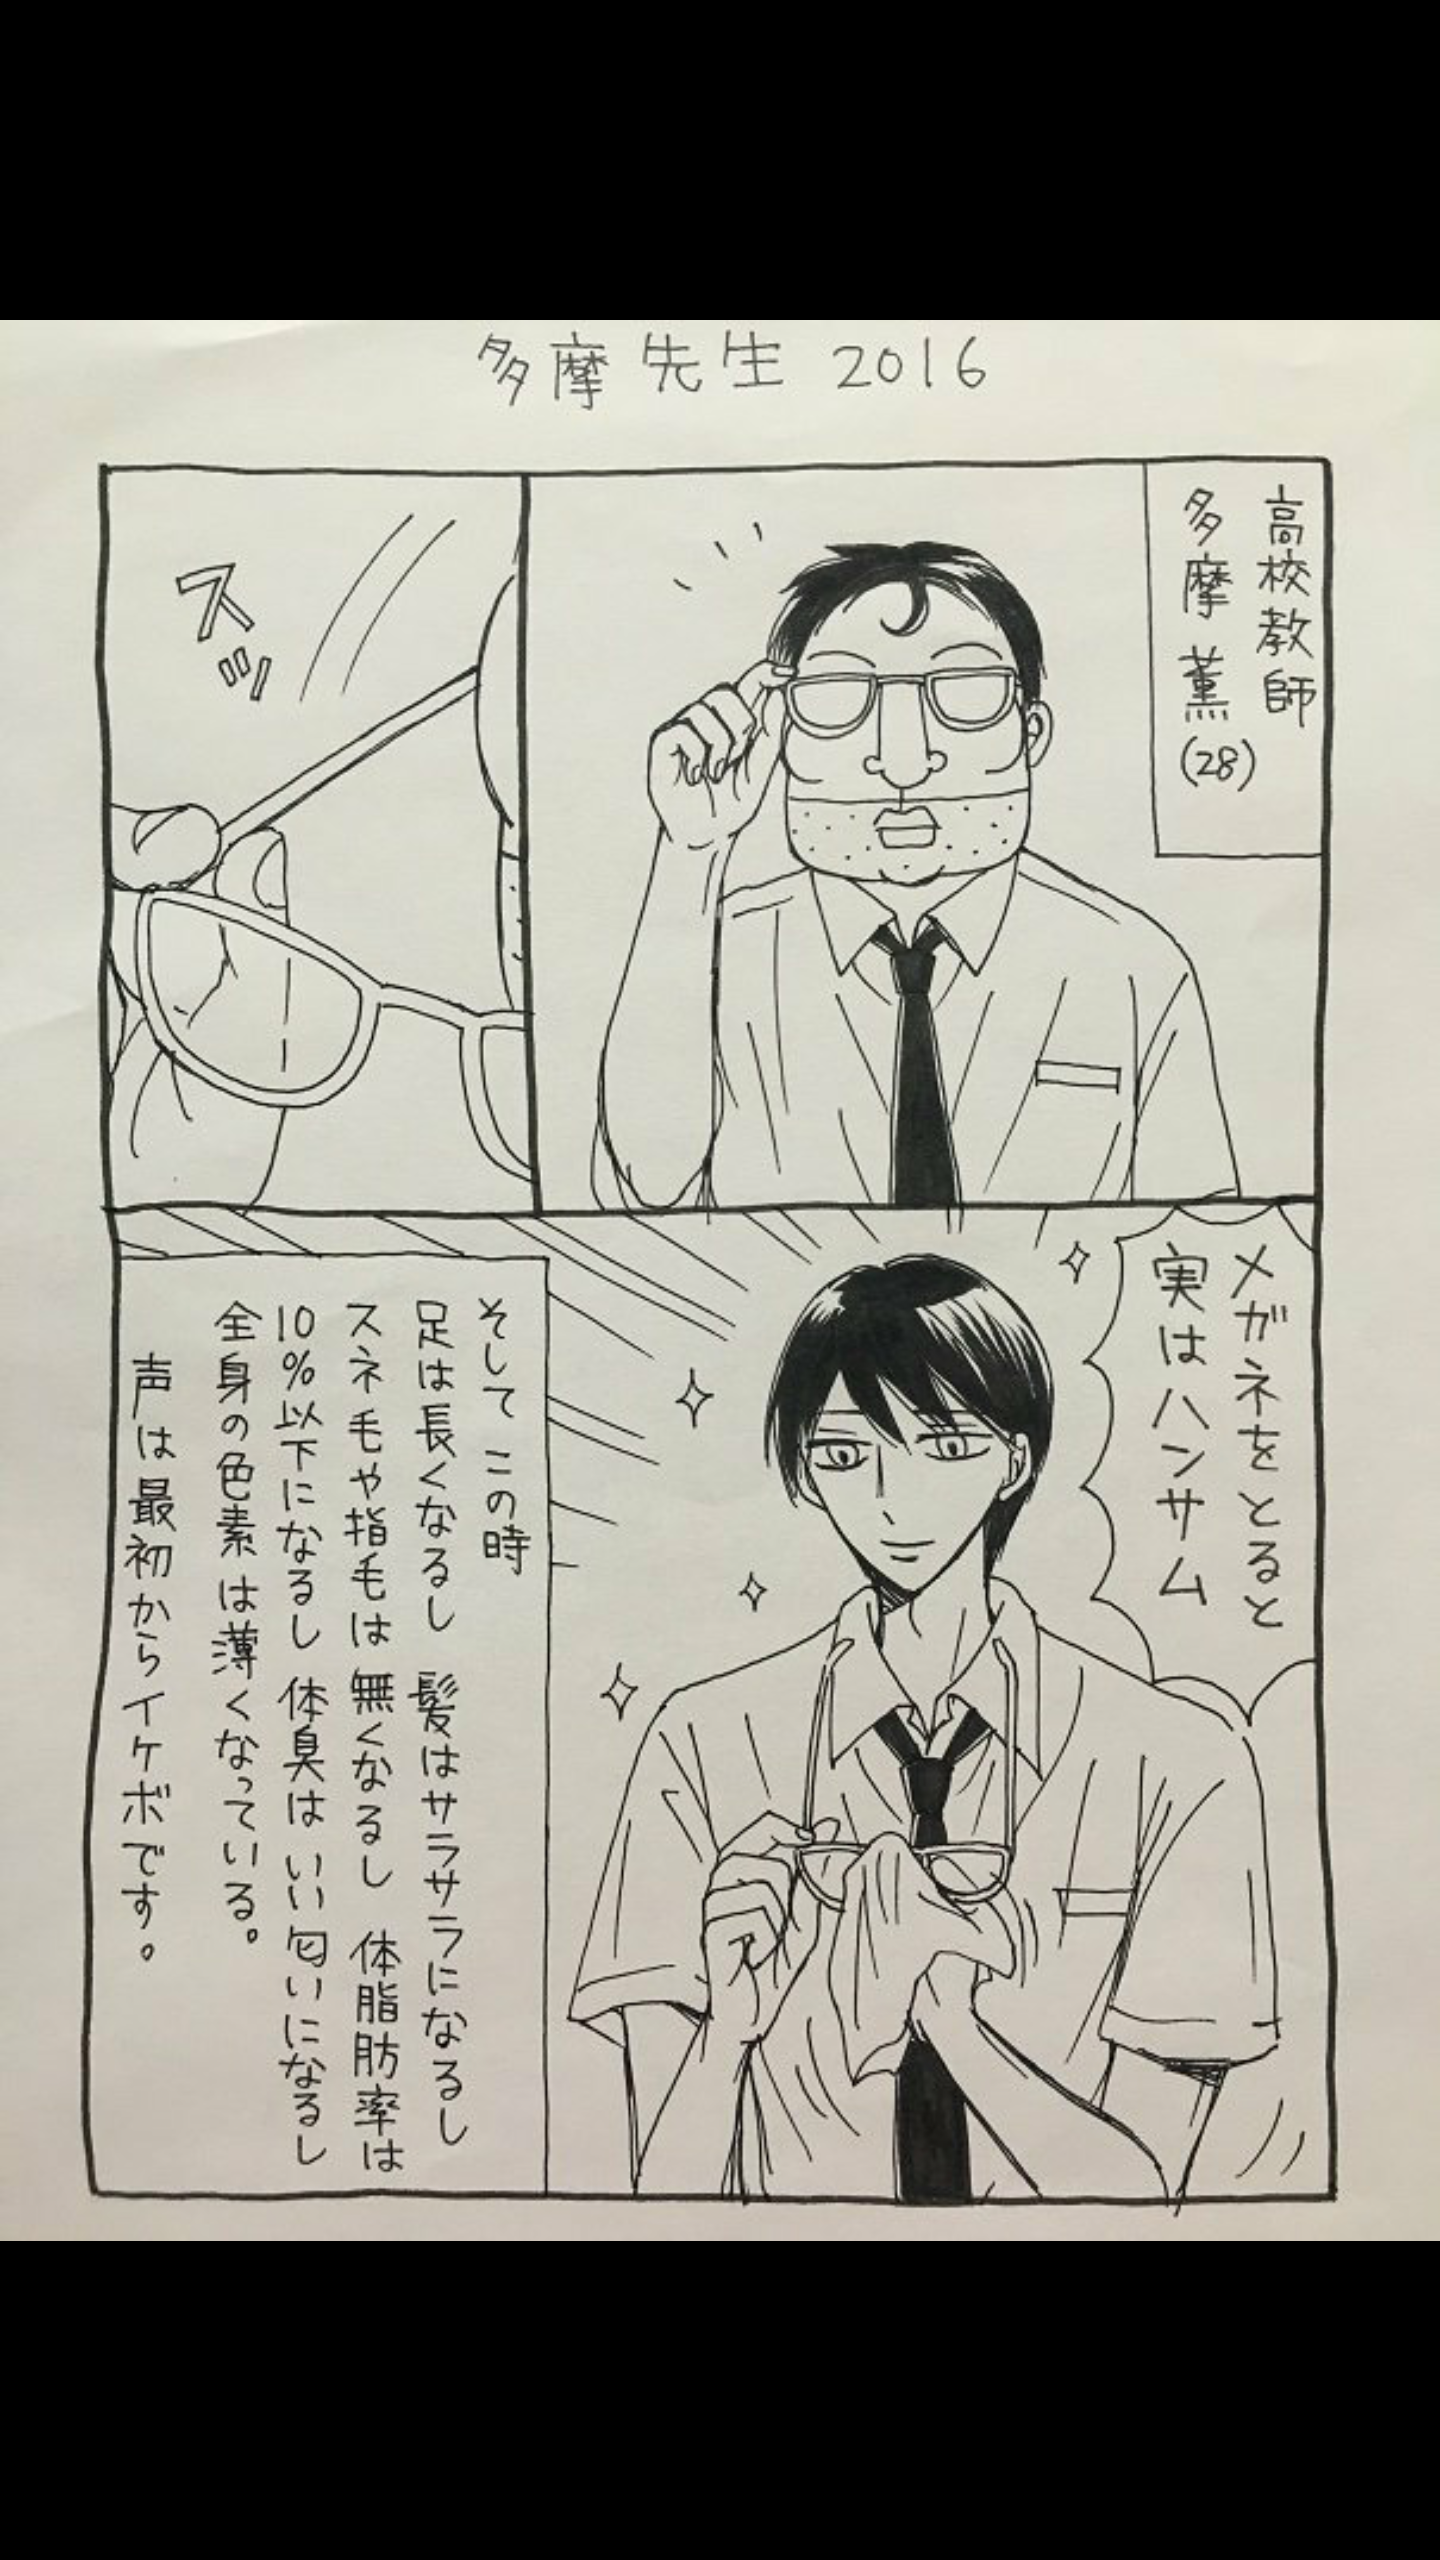 多摩先生 2016
高校教師
多摩 薫
(28)
スッ
メガネをとると
実はハンサム
そして この時
足は長くなるし 髪はサラサラになるし
スネ毛や指毛は 無くなるし 体脂肪率は
10%以下になるし 体臭は いい匂いになるし
全身の色素は薄くなっている。
声は最初からイケボです。